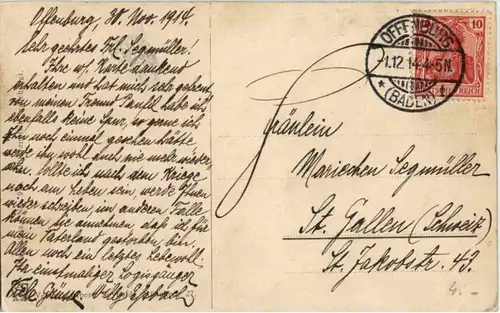 Offenburg, 30. Nov. 1914.
Sehr geehrtes Frl. Segmüller!
Ihre w. Karte dankend
erhalten und hat mich sehr gefreut,
von meinem Freund habe ich
ebenfalls keine Spur, so gerne ich
ihn noch einmal gesehen hätte
werde ihn wohl auch nie mehr wieder
sehen. Sollte ich nach dem Kriege
noch am Leben sein, werde Ihnen
wieder schreiben, im anderen Falle
können Sie annehmen, daß ich für
mein Vaterland gestorben bin.
Allen noch ein letztes Lebewohl.
Ihr einstmaliger Logisgänger
Viele Grüsse Willy
OFFENBURG
-1.12.14.4-5N.
* (BADEN)
10
REICH
Fräulein
Mariechen Segmüller
St. Gallen (Schweiz)
St. Jakobstr. 43.
4.-